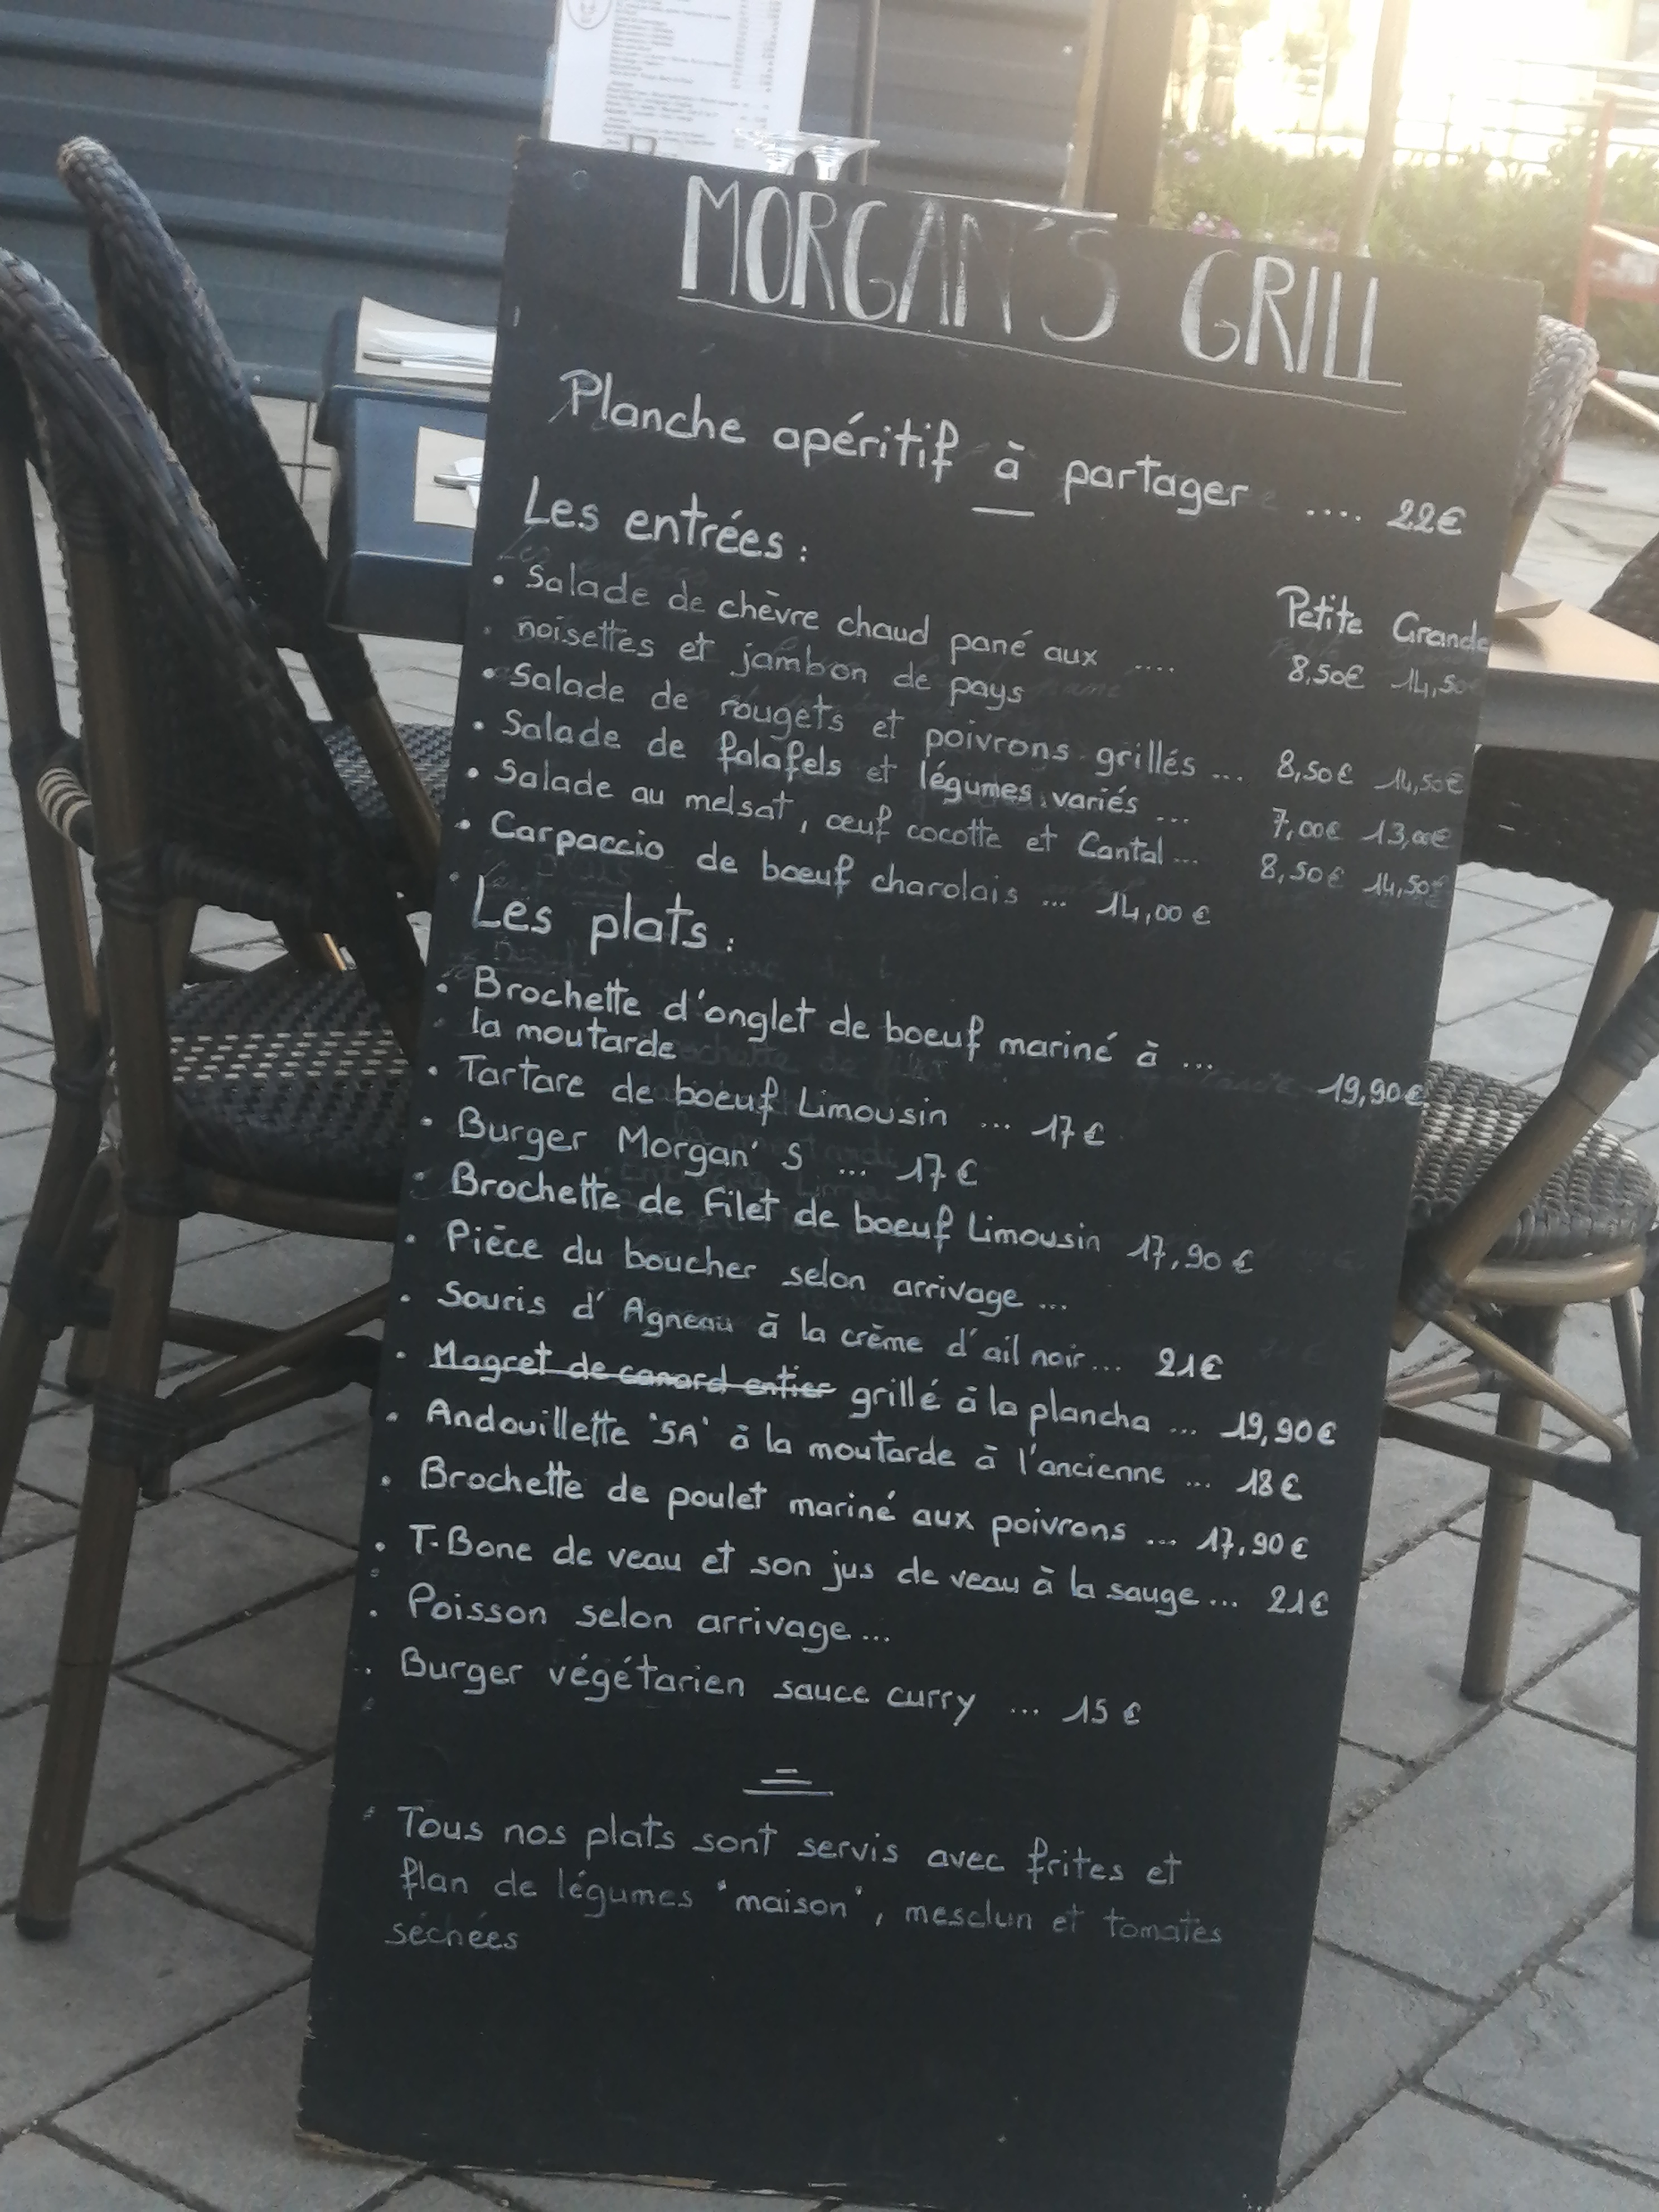 MORGAN'S GRILL
Planche apéritif à partager .... 22€
Les entrées :
Petite Grande
• Salade de chèvre chaud pané aux .... 8,50€ 14,50€
noisettes et jambon de pays
• Salade de rougets et poivrons grillés ... 8,50€ 14,50€
• Salade de falafels et légumes variés ... 7,00€ 13,00€
• Salade au melsat, œuf cocotte et Cantal ... 8,50€ 14,50€
• Carpaccio de bœuf charolais ... 14,00€
Les plats :
• Brochette d'onglet de boeuf mariné à ... 19,90€
la moutarde
• Tartare de boeuf Limousin ... 17€
• Burger Morgan's ... 17€
• Brochette de Filet de boeuf Limousin 17,90€
• Pièce du boucher selon arrivage ...
• Souris d'Agneau à la crème d'ail noir ... 21€
• Magret de canard entier grillé à la plancha ... 19,90€
• Andouillette "5A" à la moutarde à l'ancienne ... 18€
• Brochette de poulet mariné aux poivrons ... 17,90€
• T-Bone de veau et son jus de veau à la sauge ... 21€
• Poisson selon arrivage ...
• Burger végétarien sauce curry ... 15€
Tous nos plats sont servis avec frites et
flan de légumes "maison", mesclun et tomates
séchées